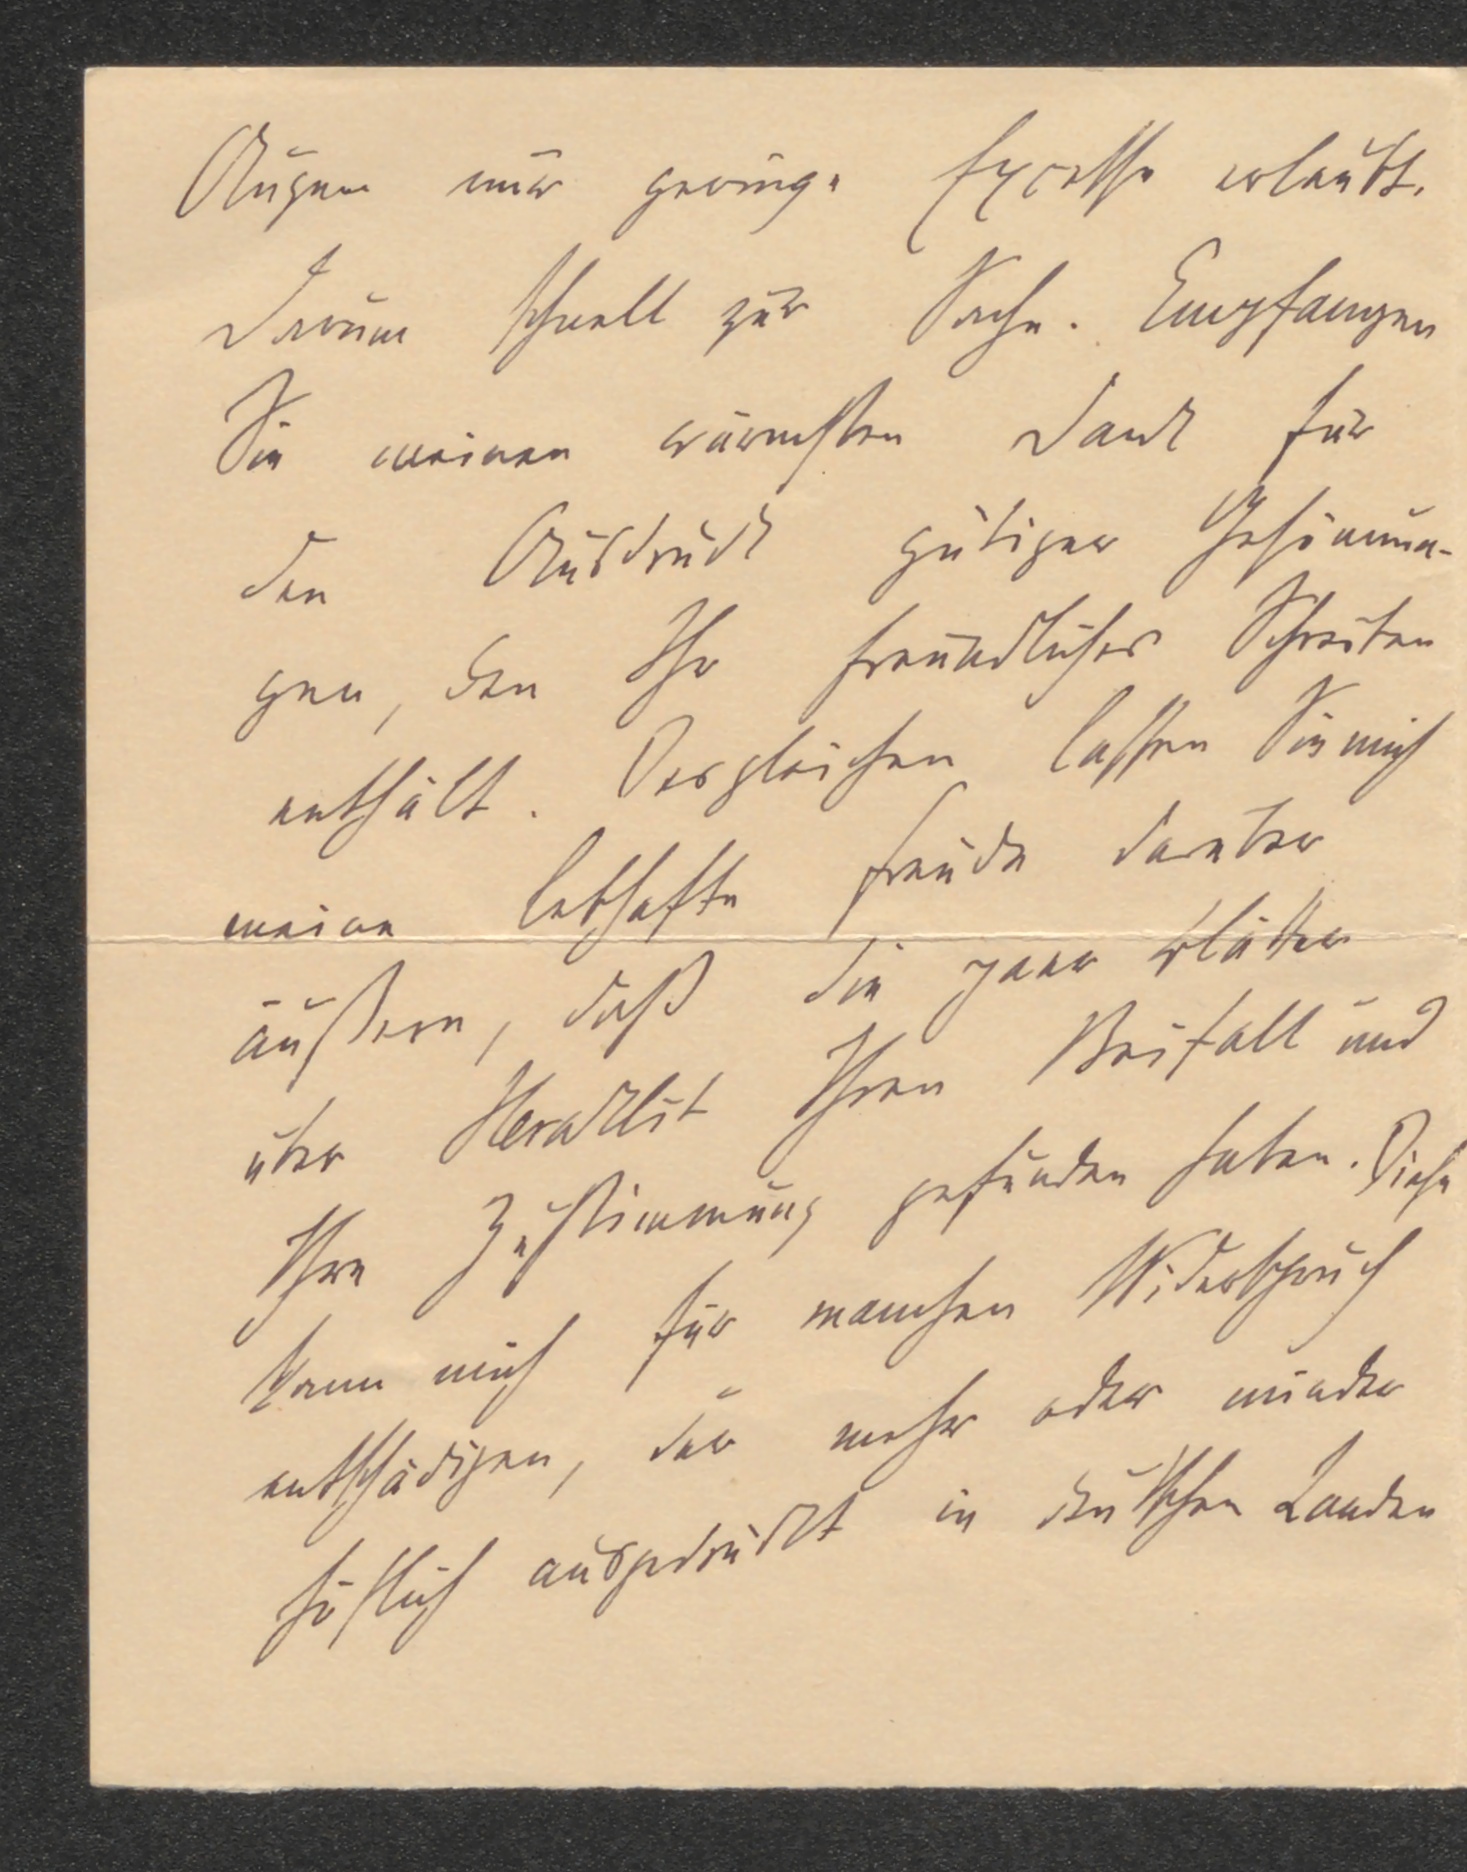 Augen nur geringe Excesse erlaubt.
Darum schnell zur Sache. Empfangen
Sie meinen wärmsten Dank für
den Ausdruck gütiger Gesinnun-
gen, den Ihr freundliches Schreiben
enthält. Desgleichen lassen Sie mich
meine lebhafte Freude darüber
äußern, daß die paar Blätter
über Heraklit Ihren Beifall und
Ihre Zustimmung gefunden haben. Diese
kann mich für manchen Widerspruch
entschädigen, der mehr oder minder
höflich ausgedrückt in deutschen Landen